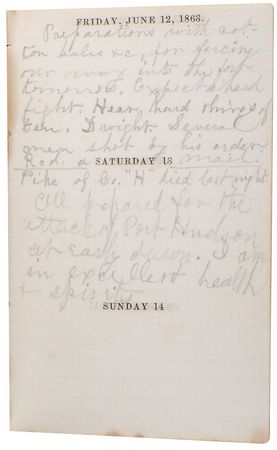 FRIDAY, JUNE 12, 1863.
Preparations with cot-
ton bales &c, for forcing
our way into the fort
tomorrow. Expect a hard
fight. Hear, hard things of
Gen. Dwight. Several
men shot by his order.
Rec. a mail.
SATURDAY 13
Pike of Co. "H" died last night.
All prepared for the
attack of Port Hudson
at early dawn. I am
in excellent health
& spirits
SUNDAY 14